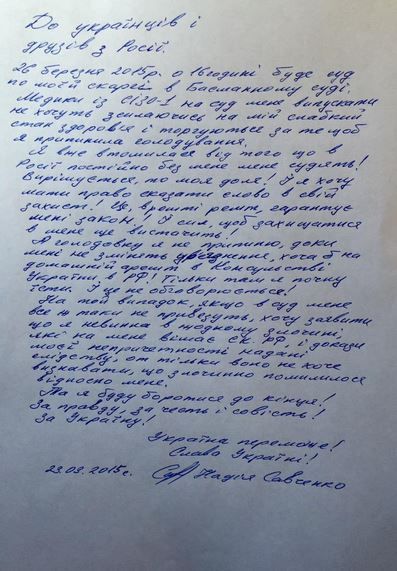 До українців і
друзів з Росії.
26 березня 2015р. о 16 годині буде суд
по моїй скарзі в Басманному суді.
Медики із СІЗО-1 на суд мене випускати
не хочуть зсилаючись на мій слабкий
стан здоров'я і торгуються за те щоб
я припинила голодування.
Я вже втомилася від того що в
Росії постійно без мене мене судять!
Вирішується, то моя доля! І я хочу
мати право сказати слово в свій
захист! Це, врешті решт, гарантує
мені закон! І сил, щоб захищатися
в мене ще вистачить!
А голодовку я не припиню, доки
мені не змінять ув'язнення, хоча б на
домашній арешт в Консульстві
України в РФ! Тільки там я почну
їсти. І це не обговорюється!
На той випадок, якщо в суд мене
все ж таки не привезуть, хочу заявити
що я невинна в жодному злочині,
які на мене вішає СК РФ, і докази
моєї непричетності надані
слідству, от тільки воно не хоче
визнавати, що злочинно помилилося
відносно мене.
Та я буду боротися до кінця!
За правду, за честь і совість!
За Україну!
Україна переможе!
Слава Україні!
23.03.2015г. Надія Савченко